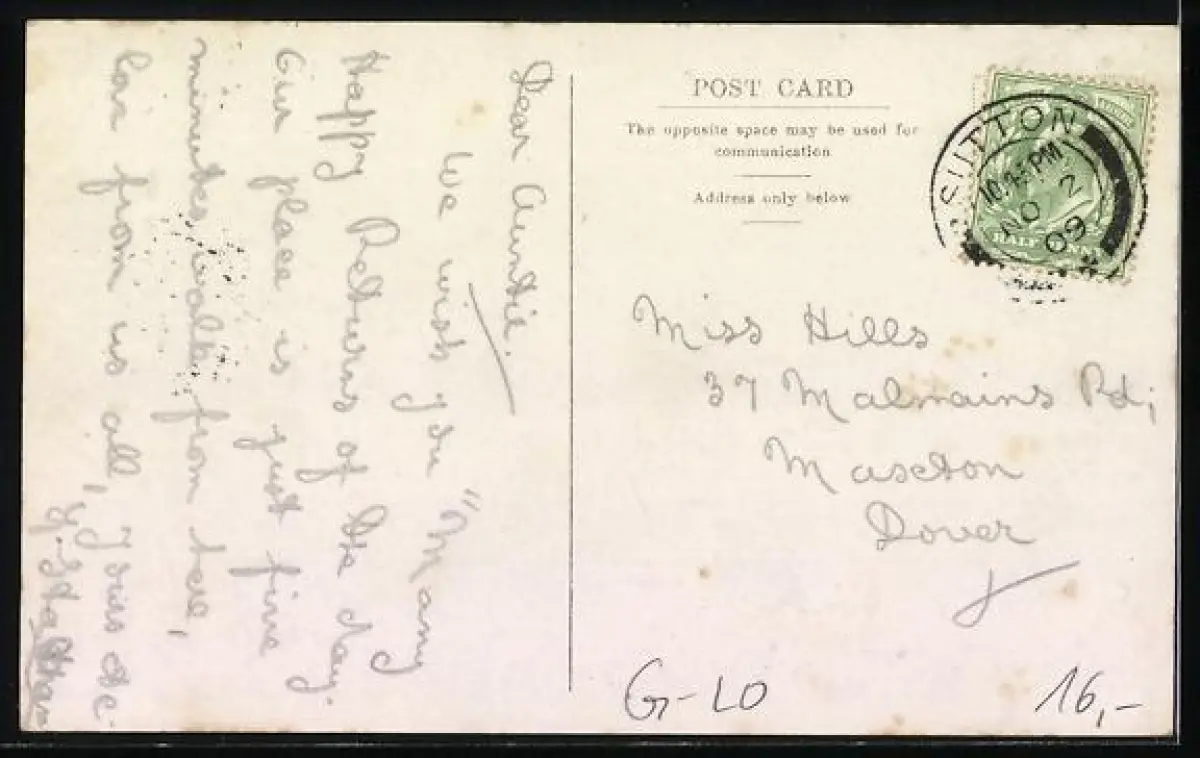 Dear Auntie.
We wish you "Many
Happy Returns of the Day.
Our place is just five
minutes walk from here,
Love from us all, Yours etc.
POST CARD
The opposite space may be used for
communication
Address only below
SUTTON
PM
NO 2
09
HALF PENNY
Miss Hills
37 Malmains Rd;
Maxton
Dover
G-LO
16,-